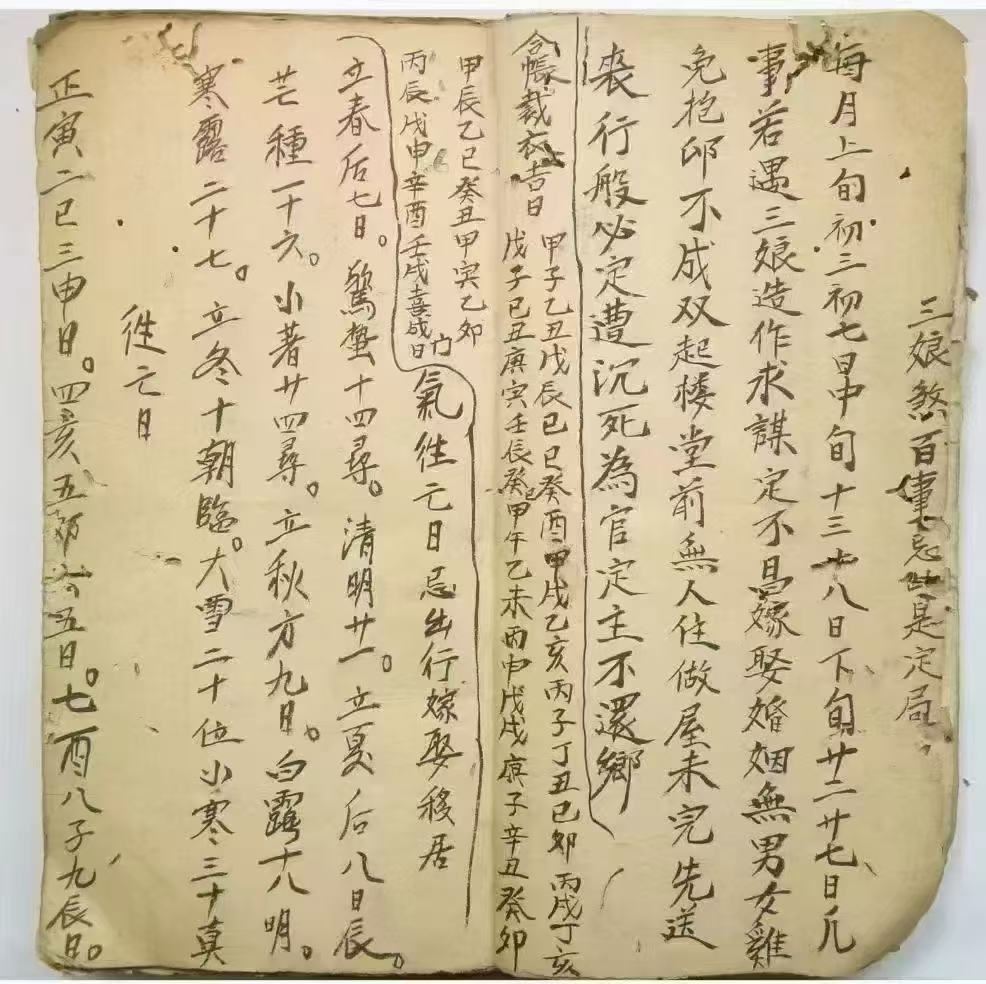 三娘煞百事忌此是定局
每月上旬初三初七日中旬十三十八日下旬廿二廿七日凡
事若遇三娘造作求謀定不昌嫁娶婚姻無男女雞
免抱卵不成双起楼堂前無人住做屋未完先送
喪行般必定遭沉死為官定主不還鄉
合帳裁衣吉日
甲子乙丑戊辰己巳癸酉甲戌乙亥丙子丁丑己卯丙戌丁亥
戊子己丑庚寅壬辰癸巳甲午乙未丙申戊戌庚子辛丑癸卯
甲辰乙巳癸丑甲寅乙卯
丙辰戊申辛酉壬戌喜成日
氣往亡日忌出行嫁娶移居
立春后七日。驚蟄十四尋。清明廿一。立夏后八日辰。
芒種一十六。小暑廿四尋。立秋方九日。白露十八明。
寒露二十七。立冬十朝臨。大雪二十位小寒三十真
往亡日
正寅二巳三申日。四亥五卯六五日。七酉八子九辰日。